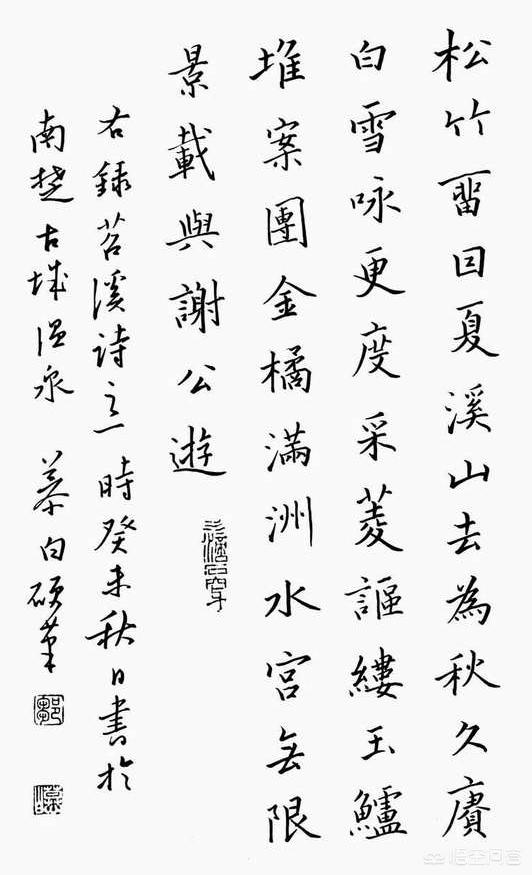 松竹畱囙夏溪山去為秋久賡
白雪咏更度采菱謳縷玉鱸
堆案團金橘滿洲水宮無限
景載與謝公遊
右録苕溪詩之一時癸未秋日書於
南楚古城温泉 慕白硕筆
悟空问答